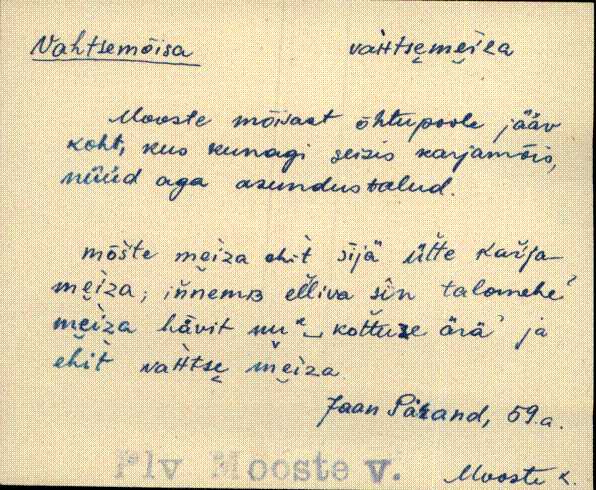 Vahtsemõisa vaHtsemeiza
Mooste mõisast õhtupoole jääv
koht, kus kunagi seisis karjamõis,
nüüd aga asundustalud.
mõšte meiza ehit sïjä ütte kaŕja-
meiza; ińnemb elliva sin talomehe'
meiza hävit nu' kottuze ärä' ja
ehit vaHtse meiza.
Jaan Pärand, 59.a.
Plv Mooste v.
Mooste k.